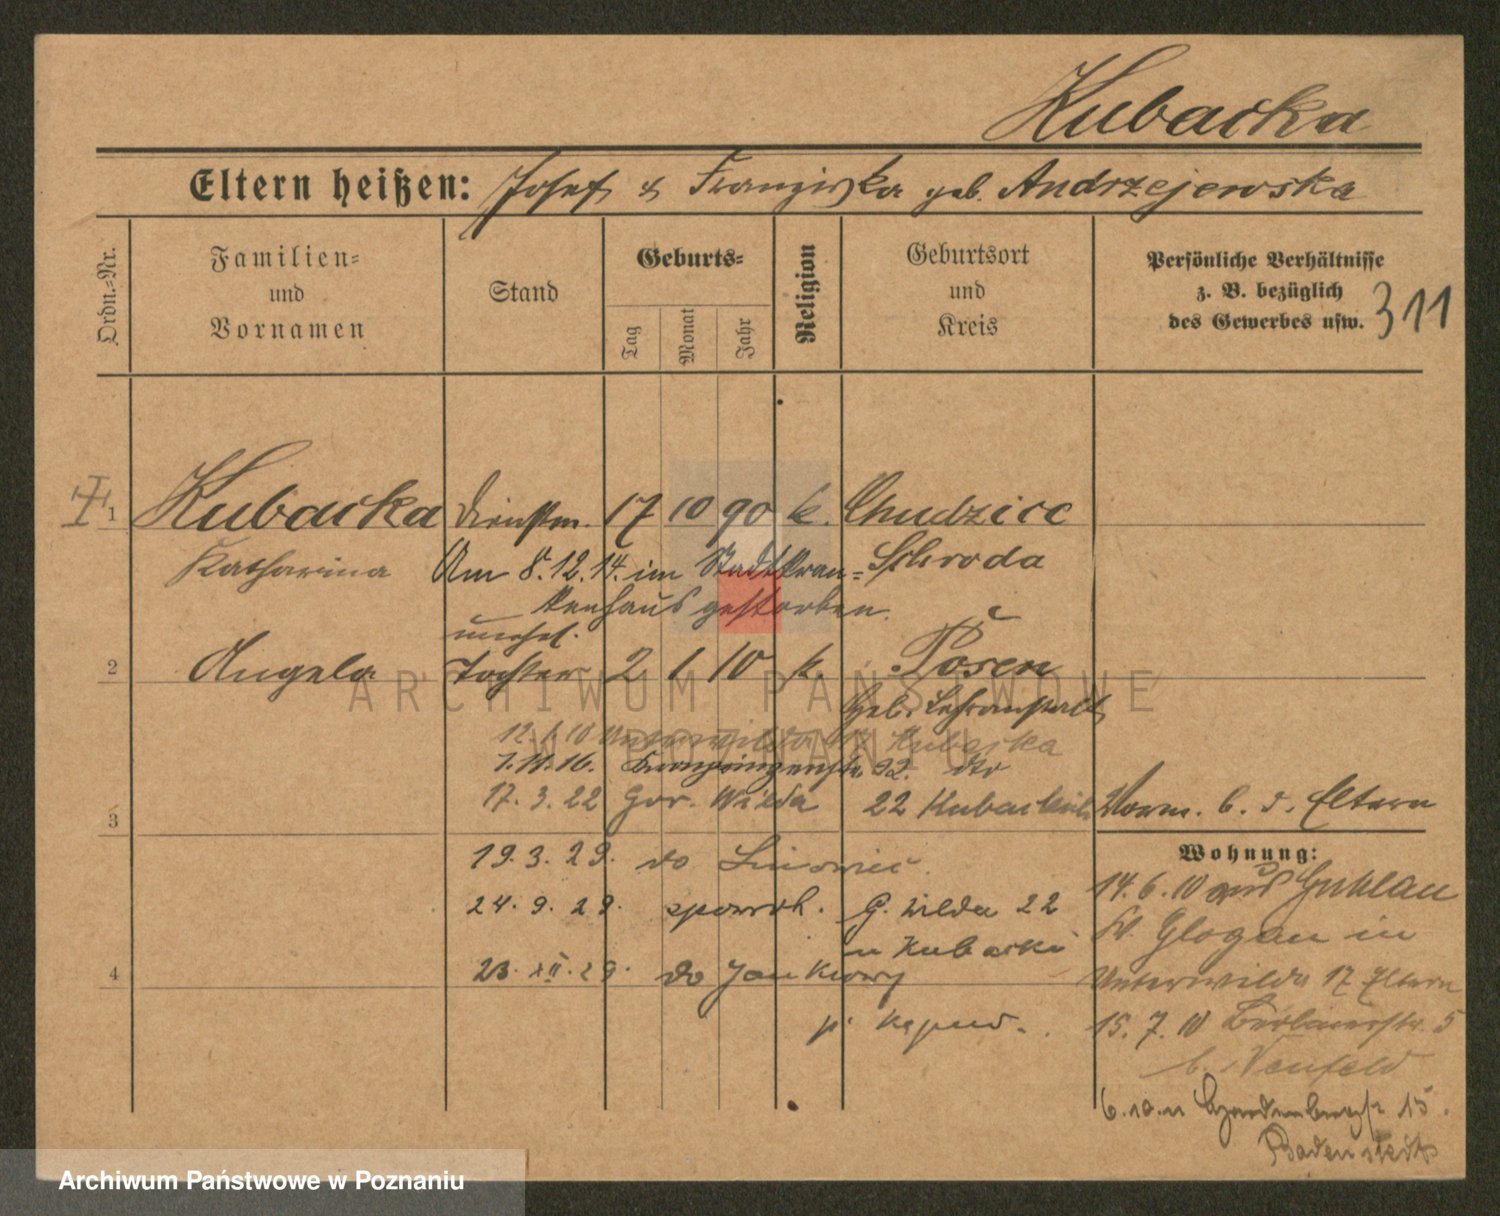 Kubacka
Eltern heißen: Josef & Franziska geb. Andrzejewska
Ordn.-Nr.
Familien-
und
Vornamen
Stand
Geburts-
Tag
Monat
Jahr
Religion
Geburtsort
und
Kreis
Persönliche Verhältnisse
z. B. bezüglich
des Gewerbes usw.
311
1 Kubacka Dienstm. 17 10 90 k. Chudzice
Katharina Am 8.12.14. im Stadtkran= Schroda
kenhaus gestorben.
unehel.
2 Angela Tochter 2 1 10 k. Posen
Heb. Lehranstalt
12.1.10 Unterwilda 17 Kubacka
1.11.16. 92. dto
17. 3. 22 Gór. Wilda 22 Kubacki
3
Vorm. b. d. Eltern
Wohnung:
14.6.10 aus Guhlau
Kr. Glogau in
Unterwilda 17 Eltern
15. 7. 10 Berlinerstr. 5
b. Neufeld
6.10.11 15.
Badenstedt
19. 3. 29. do
24. 9. 29. powrót. G. Wilda 22
u Kubacki
4
23. XII. 29. do Jankowy
p.
ARCHIWUM PAŃSTWOWE
W POZNANIU
Archiwum Państwowe w Poznaniu